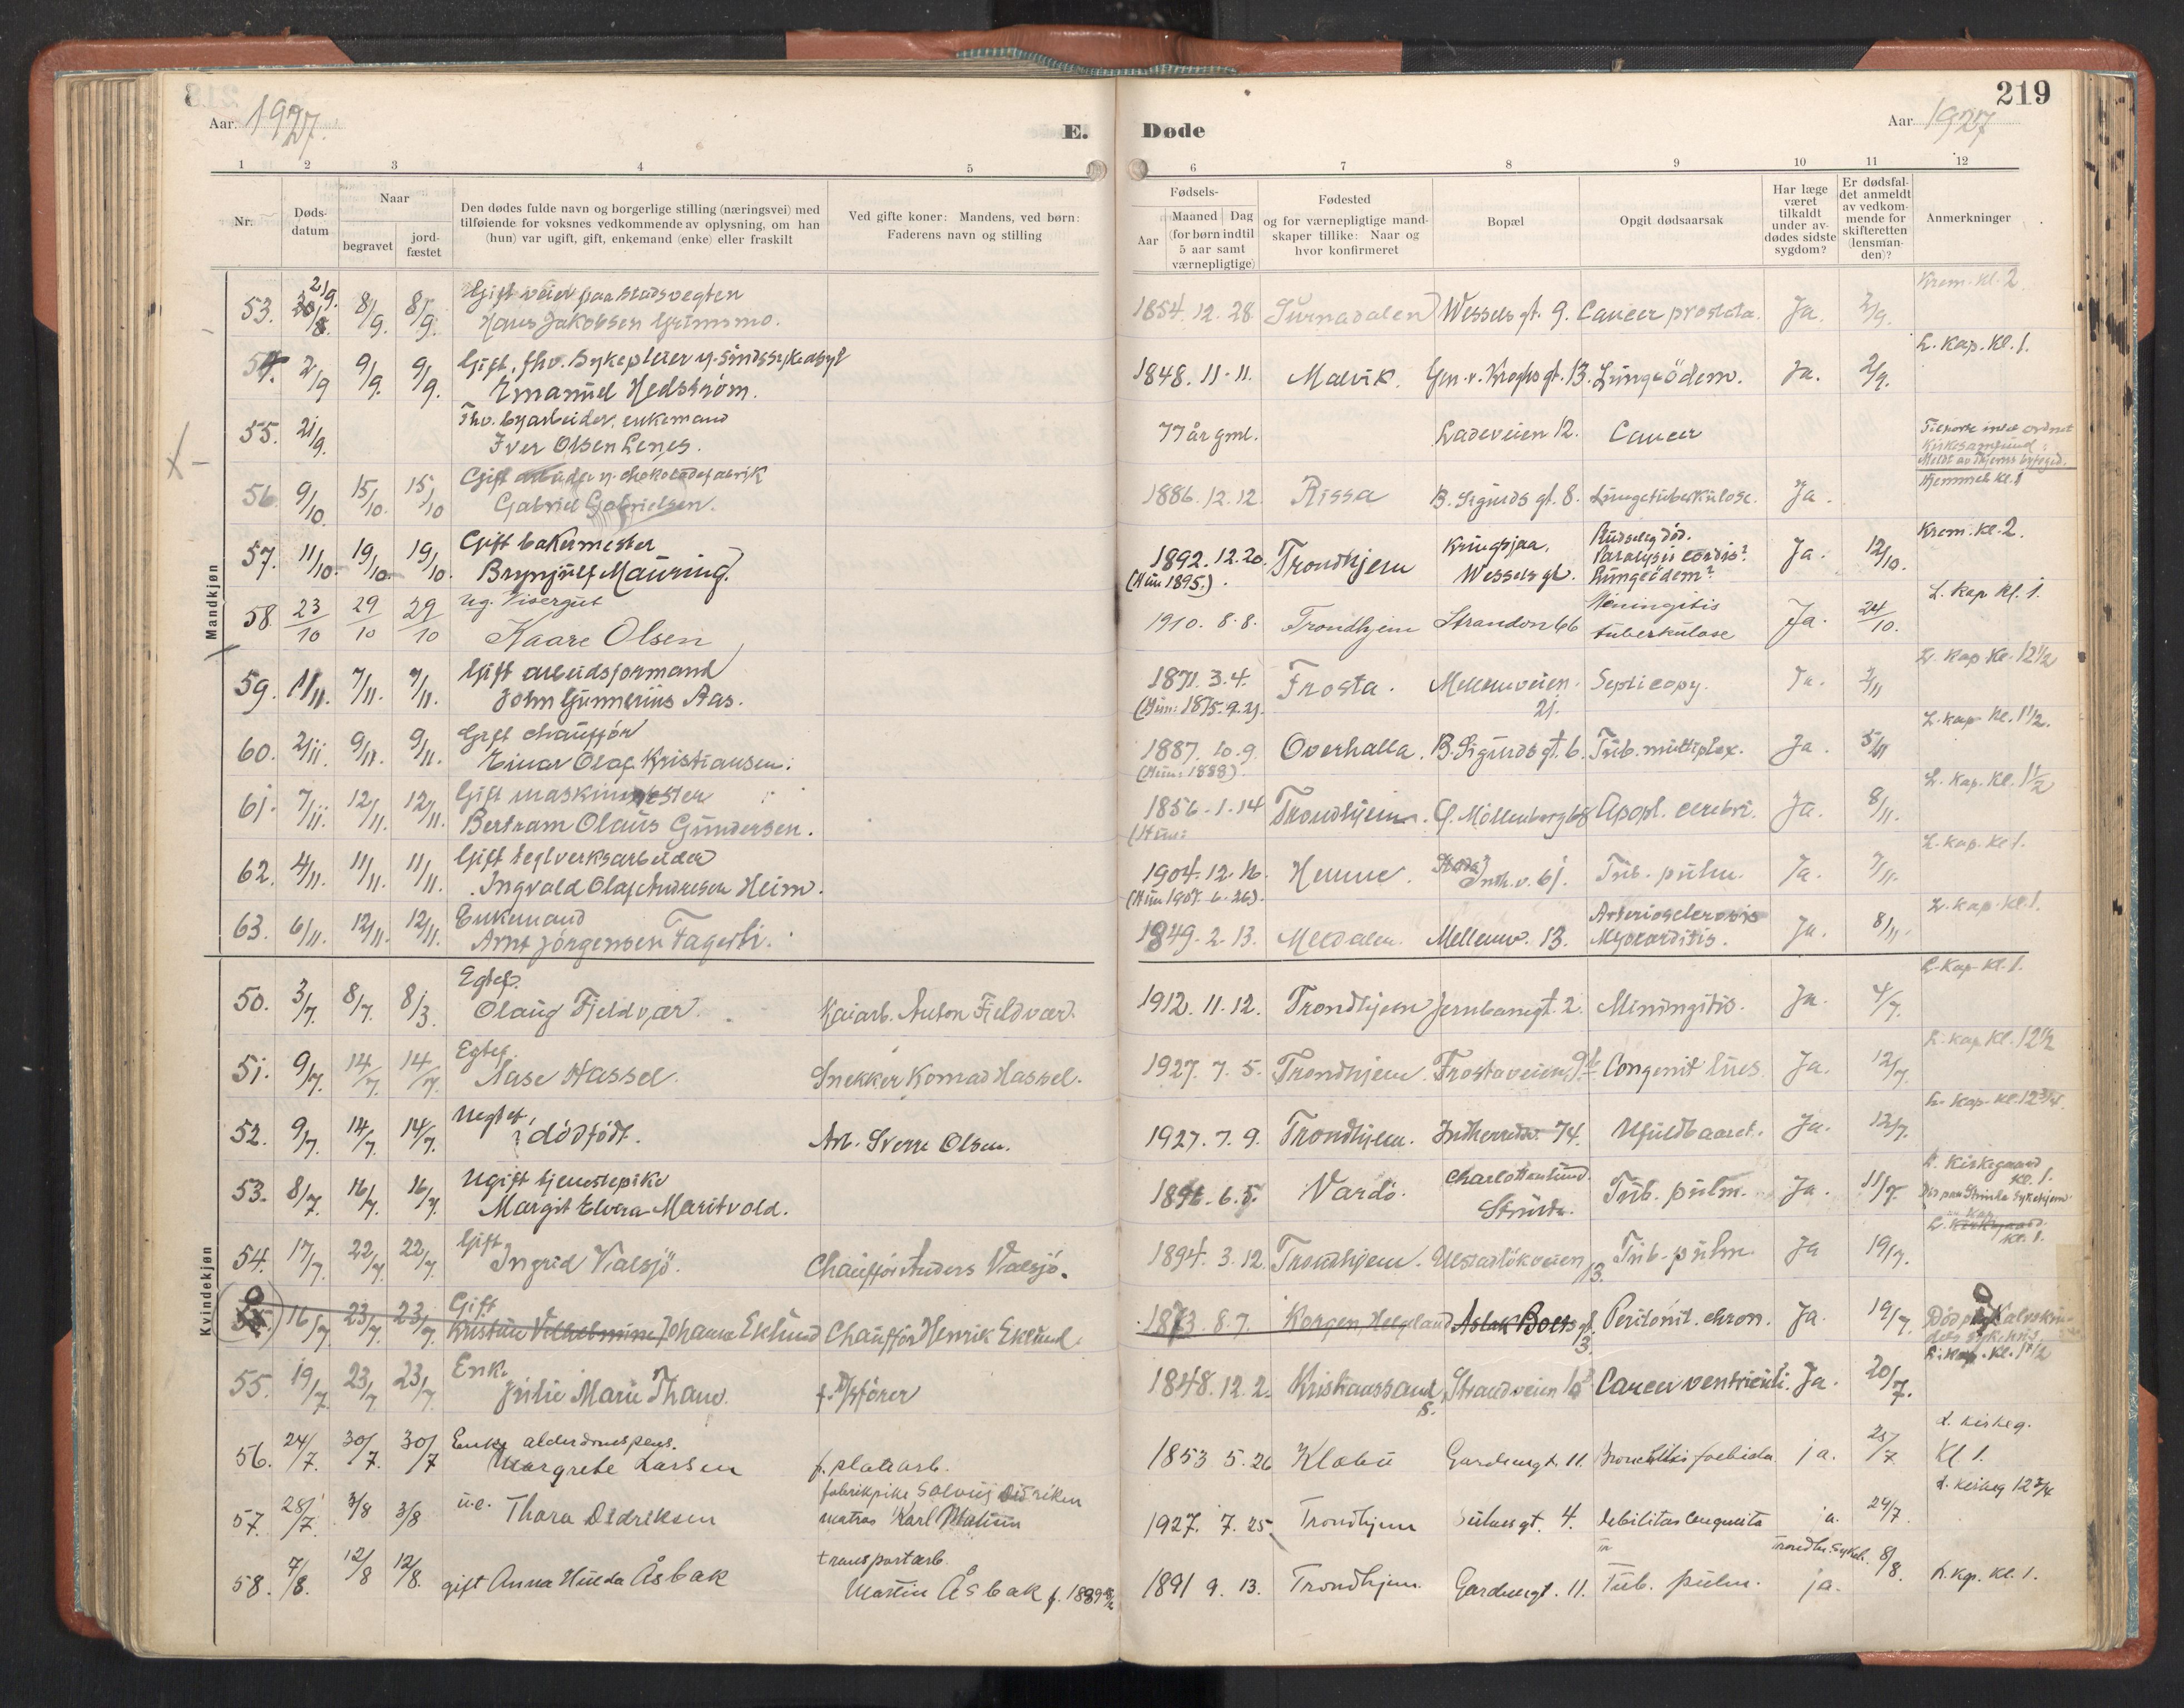 219
Aar. 1927.
E.
Døde
Aar 1927
1 2 3 4 5 6 7 8 9 10 11 12
Nr.
Døds-
datum
Naar
begravet
jord-
fæstet
Den dødes fulde navn og borgerlige stilling (næringsvei) med
tilføiende for voksnes vedkommende av oplysning, om han
(hun) var ugift, gift, enkemand (enke) eller fraskilt
Ved gifte koner: Mandens, ved børn:
Faderens navn og stilling
Fødsels-
Aar
Maaned Dag
(for børn indtil
5 aar samt
værnepligtige)
Fødested
og for værnepligtige mand-
skaper tillike: Naar og
hvor konfirmeret
Bopæl
Opgit dødsaarsak
Har læge
været
tilkaldt
under av-
dødes sidste
sygdom?
Er dødsfal-
det anmeldt
av vedkom-
mende for
skifteretten
(lensman-
den)?
Anmerkninger
Mandkjøn
53. 2/9. 30/8. 8/9. 8/9. Gift veier paa stadsvegten
Hans Jakobsen Grimsmo.
1854. 12. 28. Surnadalen Wessels gt. 9. Cancer prostata. Ja. 2/9. Krem. Kl. 2
54. 2/9 9/9. 9/9. Gift, fhv. Sykepleier v. Sindssykeasyl
Emanuel Hedstrøm.
1848. 11. 11. Malvik. Gen. v. Kroghs gt. 13. Lungeödem. Ja. 2/9. L. Kap. Kl. 1.
55. 21/9. Fhv. byarbeider, enkemand
Iver Olsen Lenes.
77 år gml. Ladeveien 12. Cancer
56. 9/10 15/10. 15/10 Gift arbeider v. chokoladefabrik
Gabriel Gabrielsen.
1886. 12. 12. Rissa B. Sigurds gt. 8. Lungetuberkulose. Ja. Hjemmet kl. 1
57. 11/10. 19/10. 19/10. Gift bakermester
Brynjulf Mauring.
1892. 12. 20. (Hun 1895.) Trondhjem Kringsjaa, Wessels gt. Pludselig död.
Paralysis cordis?
Lungeödem? Ja. 12/10. Krem. Kl. 2.
58. 23/10 29/10 29/10 Ug. Visergut
Kaare Olsen
1910. 8. 8. Trondhjem Stranden 66 Meningitis
tuberkulose Ja. 24/10. L. Kap Kl. 1.
59. 1/11. 7/11. 7/11. Gift arbeidsformand
John Gunnerius Aas.
1871. 3. 4. (Hun: 1875. 9. 21). Frosta. Mellemveien. 21. Ja. 2/11 L. Kap Kl. 12½
60. 2/11. 9/11. 9/11. Gift chauffør
Einar Olaf Kristiansen.
1887. 10. 9. (Hun: 1888). Overhalla. B. Sigurds gt. 6. Tub. multiplex. Ja. 5/11 L. Kap Kl. 1½.
61. 7/11. 12/11. 12/11. Gift maskinmester
Bertram Olaus Gundersen.
1856. 1. 14 (Hun: Trondhjem. Ø. Möllenberg 68 Apopl. cerebri. Ja. 8/11. L. Kap. Kl. 1½
62. 4/11. 11/11. 11/11. Gift teglverksarbeider
Ingvald Olaf Andresen Heim.
1904. 12. 16. (Hun 1907. 6. 26). Hemne. Innh. v. 61. Tub. pulm. Ja. 7/11. L. Kap. Kl. 1.
63. 6/11. 12/11. 12/11. Enkemand
Arnt Jörgensen Fagerli.
1849. 2. 13. Meldalen. Mellemv. 13. Arteriosclerosis
Myocarditis. Ja. 8/11. L. Kap. Kl. 1.
Kvindekjøn
50. 3/7. 8/7. 8/3. Egtef.
Olaug Fjeldvær. Kaiarb. Anton Fjeldvær.
1912. 11. 12. Trondhjem Jernbanegt. 2. Miningitis. Ja. 4/7. L. Kap. Kl. 1.
51. 9/7. 14/7 14/7. Egtef.
Aase Hassel. Snekker Konrad Hassel.
1927. 7. 5. Trondhjem. Frostaveien 9b Congenit lues. Ja. 12/7. L. Kap Kl. 12½
52. 9/7. 14/7. 14/7. Uegtef.
dödfödt. Arb. Sverre Olsen.
1927. 7. 9. Trondhjem. Indherredsv. 74. Ufuldbaaret. Ja. 12/7. L. Kap. Kl. 12¾.
53. 8/7. 16/7. 16/7. Ugift tjenestepike
Margit Elvira Maritvold.
1896. 6. 5. Vardö. Charlottenlund. Strinda. Tub. pulm. Ja. 11/7 L. Kirkegaard
kl. 1.
Död paa Strinda Sykehjem
54. 17/7. 22/7. 22/7. Gift
Ingrid Valsjö. Chauffør Anders Valsjö.
1894. 3. 12. Trondhjem. 13. Tub. pulm. Ja 19/7. L. Kap kl. 1.
16/7 23/7. 23/7. Gift
Kristine Vilhelmine Johanne Eklund Chauffør Henrik Eklund.
1873. 8. 7. Korgen, Helgeland Aslak Bolts gt. 3. Peritonit. chron. Ja. 19/7.
55. 19/7. 23/7. 23/7. Enk.
Julie Marie Thane. f.
1848. 12. 2. Kristianssand S. Strandveien Cancer ventriculi. Ja. 20/7. L. Kap. Kl. 1½
56. 24/7. 30/7. 30/7 Enke alderdomspens.
Margrete Larsen f. platearb.
1853 5. 26 Klæbu Gardemgt. 11. Bronchitis foetida ja. 25/7 L. kirkeg.
Kl 1.
57. 28/7. 3/8 3/8 u.e. Thora Didriksen fabrikpike Solveig Didriksen
matros Karl
1927. 7. 25 Trondhjem gt. 4. debilitas congenita ja. 29/7. L. kirkeg 12¾
58. 7/8. 12/8 12/8. gift Anna Hilda Åsbak transportarb.
Martin Åsbak f. 1889
1891 9. 13. Trondhjem Gardemgt. 11. Tub. pulm. Trondhj. Sykeh. ja. 8/8. L. Kp. Kl. 1.